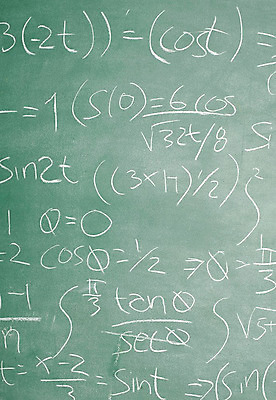 3(-2t))'=(cost)=
-=1 (S(0)=6cos
√32t/8 Si
Sin2t ((3x+1)^1/2)^2
1 Θ=0
=2 cosΘ=1/2 ⇒Θ=π/3
-1 ∫^π/3 tanΘ/secΘ ∫√5+
t=x-2/3=Sint ⇒(Sin(